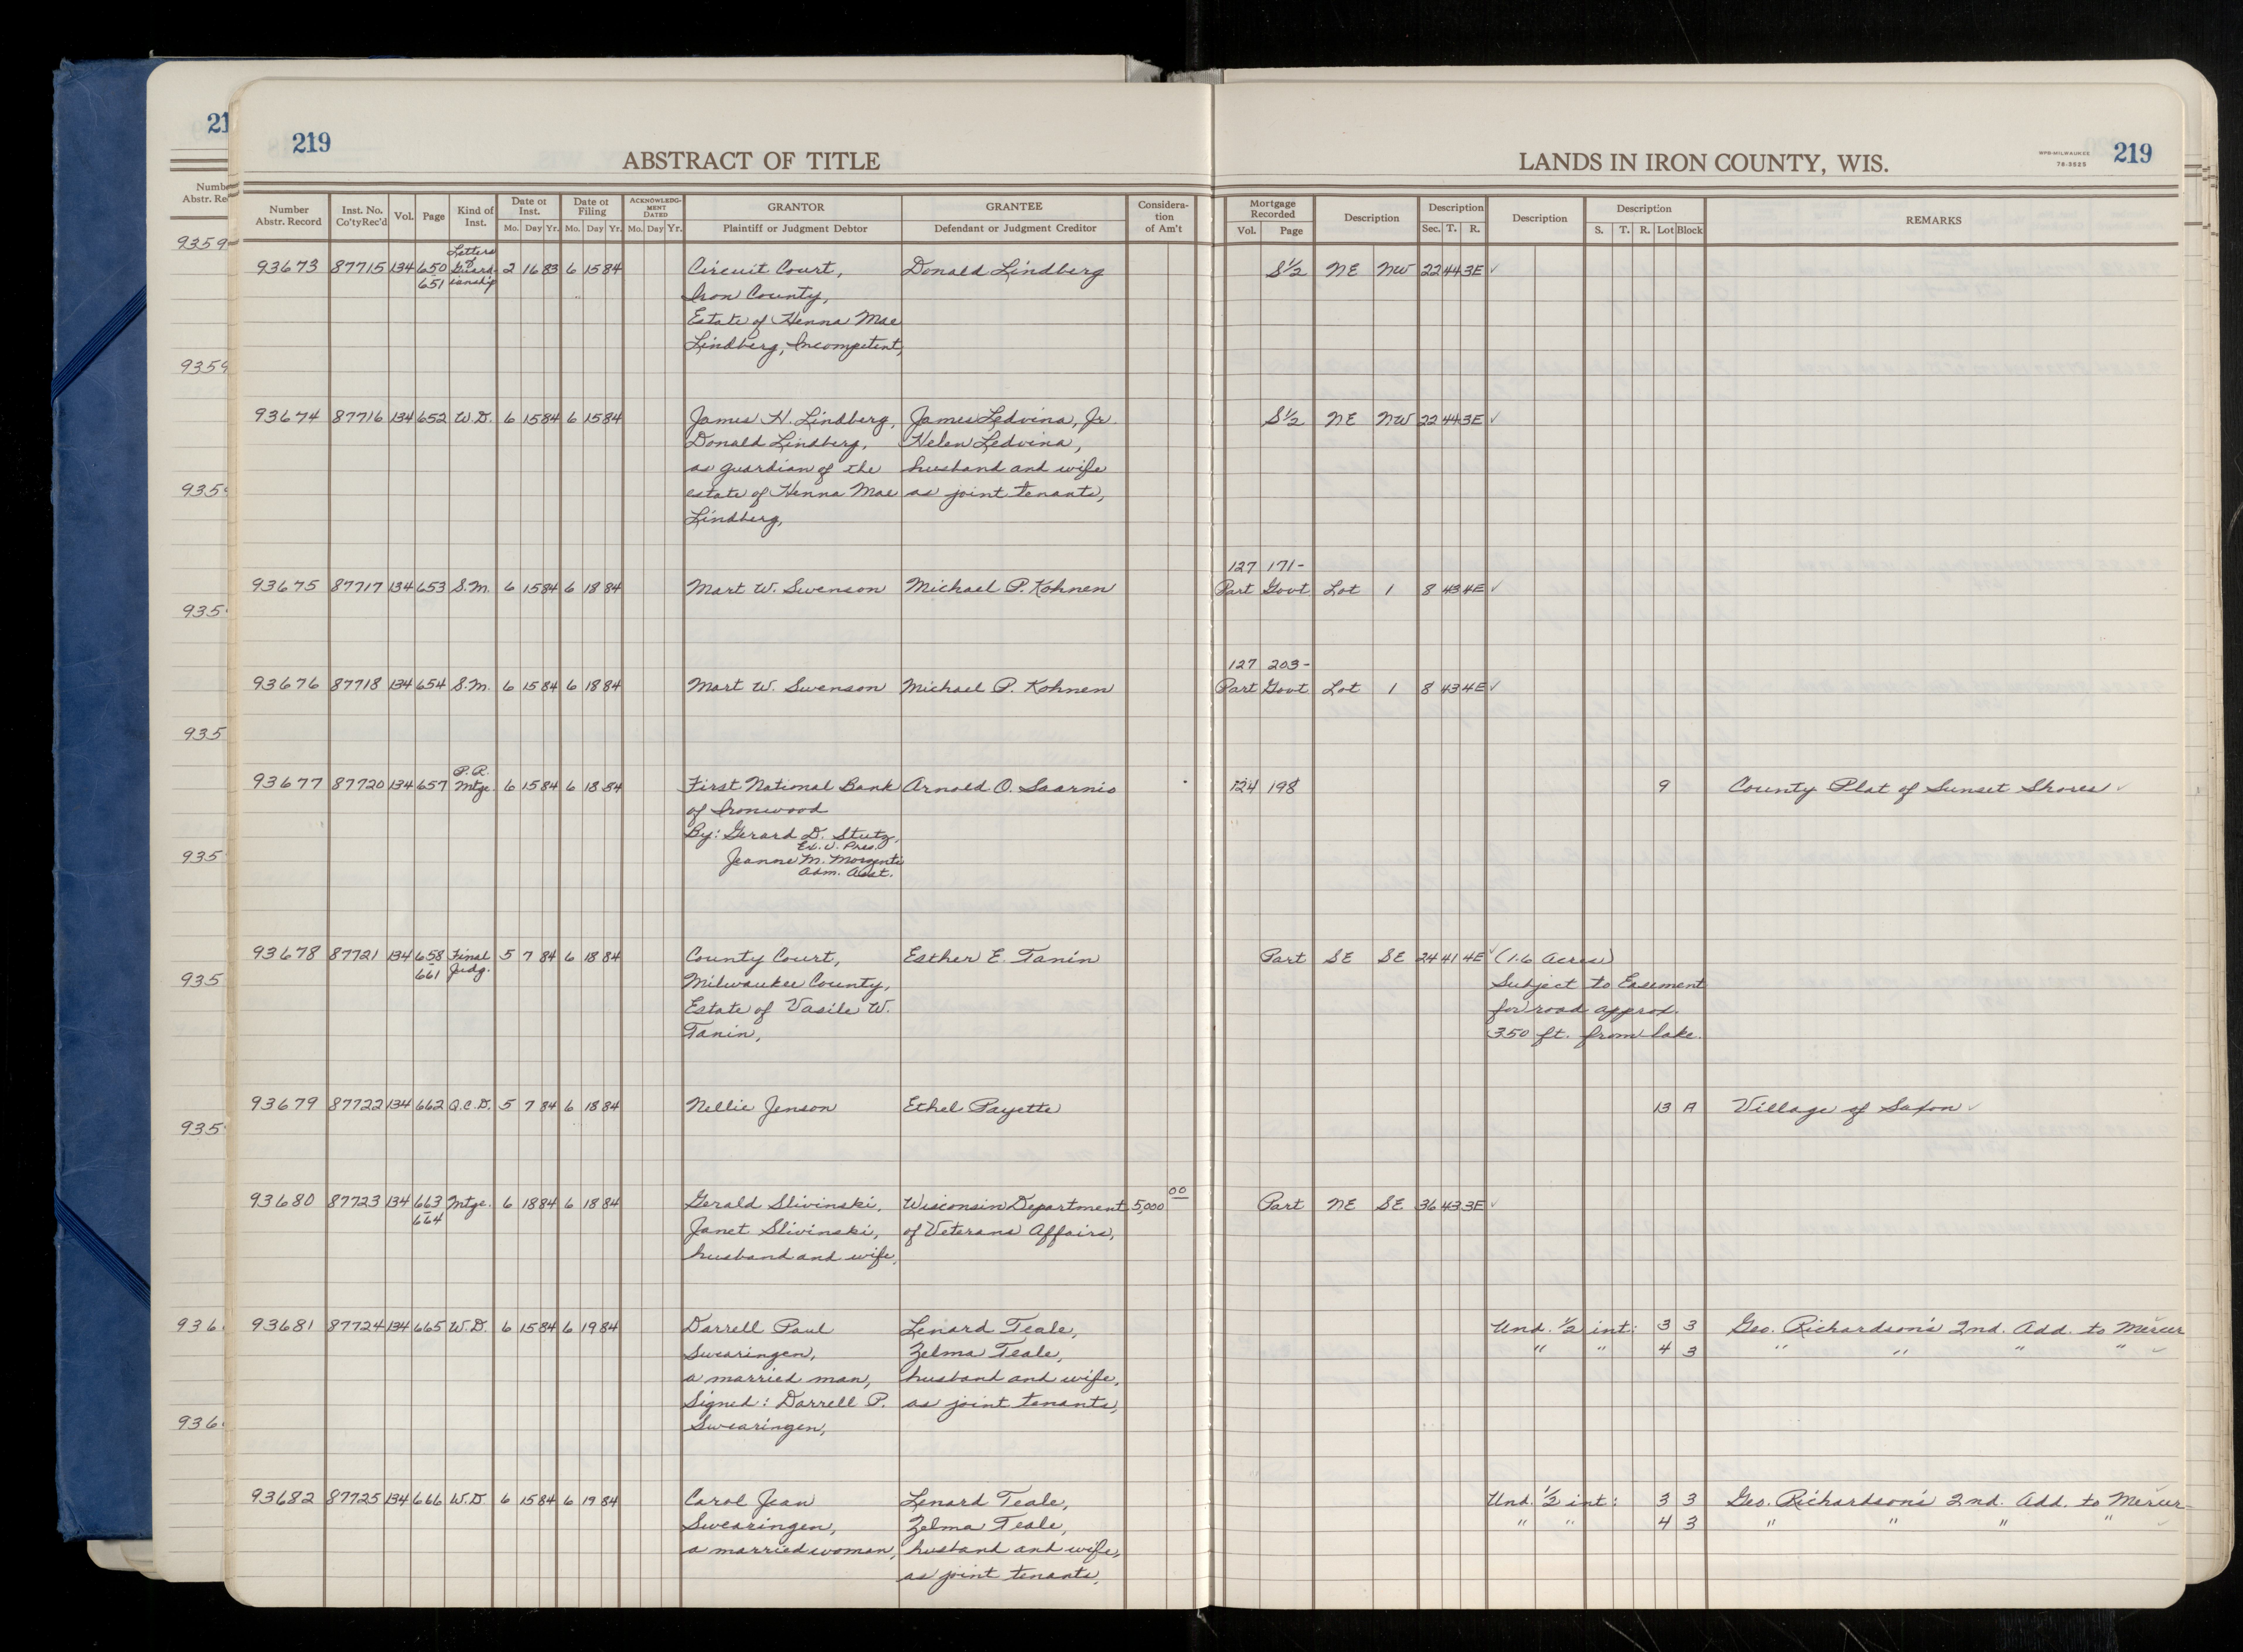 21
219
ABSTRACT OF TITLE
LANDS IN IRON COUNTY, WIS.
WPB-MILWAUKEE
78-3525
219
Number Abstr. Record | Inst. No. Co'ty Rec'd | Vol. | Page | Kind of Inst. | Date of Inst. Mo. Day Yr. | Date of Filing Mo. Day Yr. | ACKNOWLEDGMENT DATED Mo. Day Yr. | GRANTOR Plaintiff or Judgment Debtor | GRANTEE Defendant or Judgment Creditor | Consideration of Am't | Mortgage Recorded Vol. Page | Description | Description Sec. T. R. | Description | Description S. T. R. Lot Block | REMARKS
Letters
93673 87715 134 650 of Guard- 2 16 83 6 15 84 Circuit Court, Donald Lindberg S½ NE NW 22 44 3E ✓
651 ianship Iron County,
Estate of Henna Mae
Lindberg, Incompetent,
93674 87716 134 652 W.D. 6 15 84 6 15 84 James H. Lindberg, James Ledvina, Jr. S½ NE NW 22 44 3E ✓
Donald Lindberg, Helen Ledvina,
as guardian of the husband and wife
estate of Henna Mae as joint tenants,
Lindberg,
127 171-
93675 87717 134 653 S.M. 6 15 84 6 18 84 Mart W. Swenson Michael P. Kohnen Part Govt Lot 1 8 43 4E ✓
127 203-
93676 87718 134 654 S.M. 6 15 84 6 18 84 Mart W. Swenson Michael P. Kohnen Part Govt Lot 1 8 43 4E ✓
P.R.
93677 87720 134 657 Mtge. 6 15 84 6 18 84 First National Bank Arnold O. Saarnio 124 198 9 County Plat of Sunset Shores ✓
of Ironwood
By: Gerard D. Stutz,
Ex. V. Pres.
Jeanne M. Morzenti
Adm. Asst.
93678 87721 134 658 Final 5 7 84 6 18 84 County Court, Esther E. Tanin Part SE SE 24 41 4E ✓ (1.6 Acres)
661 Judg. Milwaukee County, Subject to Easement
Estate of Vasile W. for road approx.
Tanin, 350 ft. from lake.
93679 87722 134 662 Q.C.D. 5 7 84 6 18 84 Nellie Jenson Ethel Payette 13 A Village of Saxon ✓
93680 87723 134 663 Mtge. 6 18 84 6 18 84 Gerald Slivinski, Wisconsin Department 5,000 00 Part NE SE 36 43 3E ✓
664 Janet Slivinski, of Veterans Affairs,
husband and wife,
93681 87724 134 665 W.D. 6 15 84 6 19 84 Darrell Paul Lenard Teale, Und. ½ int: 3 3 Geo. Richardson's 2nd. Add. to Mercer ✓
Swearingen, Zelma Teale, " " 4 3 " " " " ✓
a married man, husband and wife,
Signed: Darrell P. as joint tenants,
Swearingen,
93682 87725 134 666 W.D. 6 15 84 6 19 84 Carol Jean Lenard Teale, Und. ½ int: 3 3 Geo. Richardson's 2nd. Add. to Mercer
Swearingen, Zelma Teale, " " 4 3 " " " " ✓
a married woman, husband and wife,
as joint tenants,